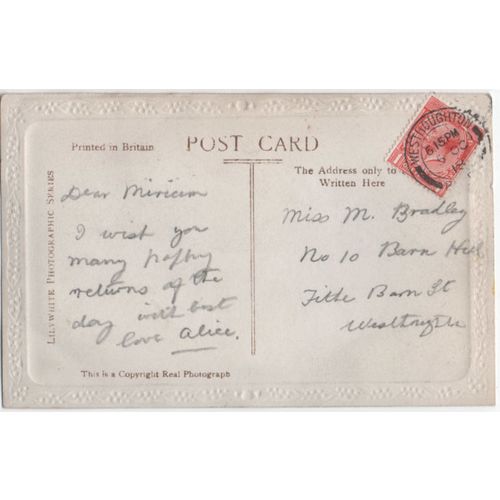 Printed in Britain
POST CARD
WESTHOUGHTON
6 15 PM
The Address only to
Written Here
LILYWHITE PHOTOGRAPHIC SERIES
Dear Miriam
I wish you
many happy
returns of the
day with best
love Alice.
Miss M. Bradley
No 10 Barn Hill
Tithe Barn St
Westhoughton
This is a Copyright Real Photograph